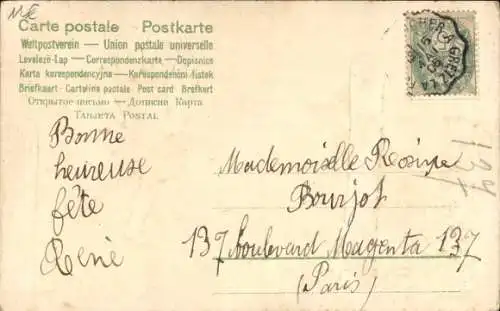 Carte postale — Postkarte
Weltpostverein — Union postale universelle
Levelező-Lap — Correspondenzkarte — Dopisnice
Karta korespondencyjna — Korespondenční lístek
Briefkaart — Cartolina postale — Post card — Brefkort
Открытое письмо — Дописна Карта
TARJETA POSTAL
Bonne
heureuse
fête
René
Mademoiselle Rosine
Bourjot
137 boulevard Magenta 137
(Paris)
137